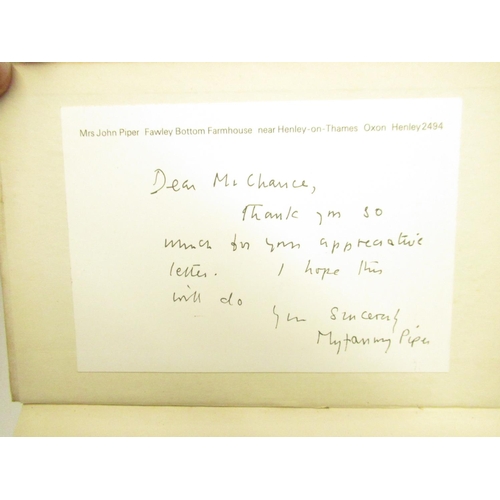 Mrs John Piper Fawley Bottom Farmhouse near Henley-on-Thames Oxon Henley 2494
Dear Mr Chance,
Thank you so
much for your appreciative
letter. I hope this
will do
Yrs Sincerely
Myfanwy Piper